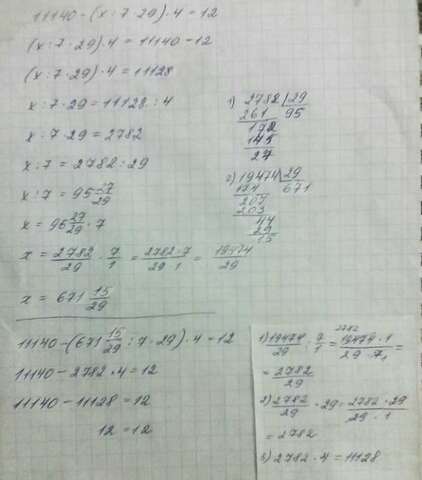 11140 - (x : 7 · 29) · 4 = 12
(x : 7 · 29) · 4 = 11140 - 12
(x : 7 · 29) · 4 = 11128
x : 7 · 29 = 11128 : 4
x : 7 · 29 = 2782
x : 7 = 2782 : 29
x : 7 = 95 27/29
x = 95 27/29 · 7
x = 2782/29 · 7/1 = 2782·7/29·1 = 19474/29
x = 671 15/29
1) 2782 | 29
261 95
172
145
27
2) 19474 | 29
174 671
207
203
44
29
15
11140 - (671 15/29 : 7 · 29) · 4 = 12
11140 - 2782 · 4 = 12
11140 - 11128 = 12
12 = 12
1) 19474/29 : 7/1 = 19474·1/29·7 =
2782
= 2782/29
2) 2782/29 · 29 = 2782·29/29·1
= 2782
3) 2782 · 4 = 11128